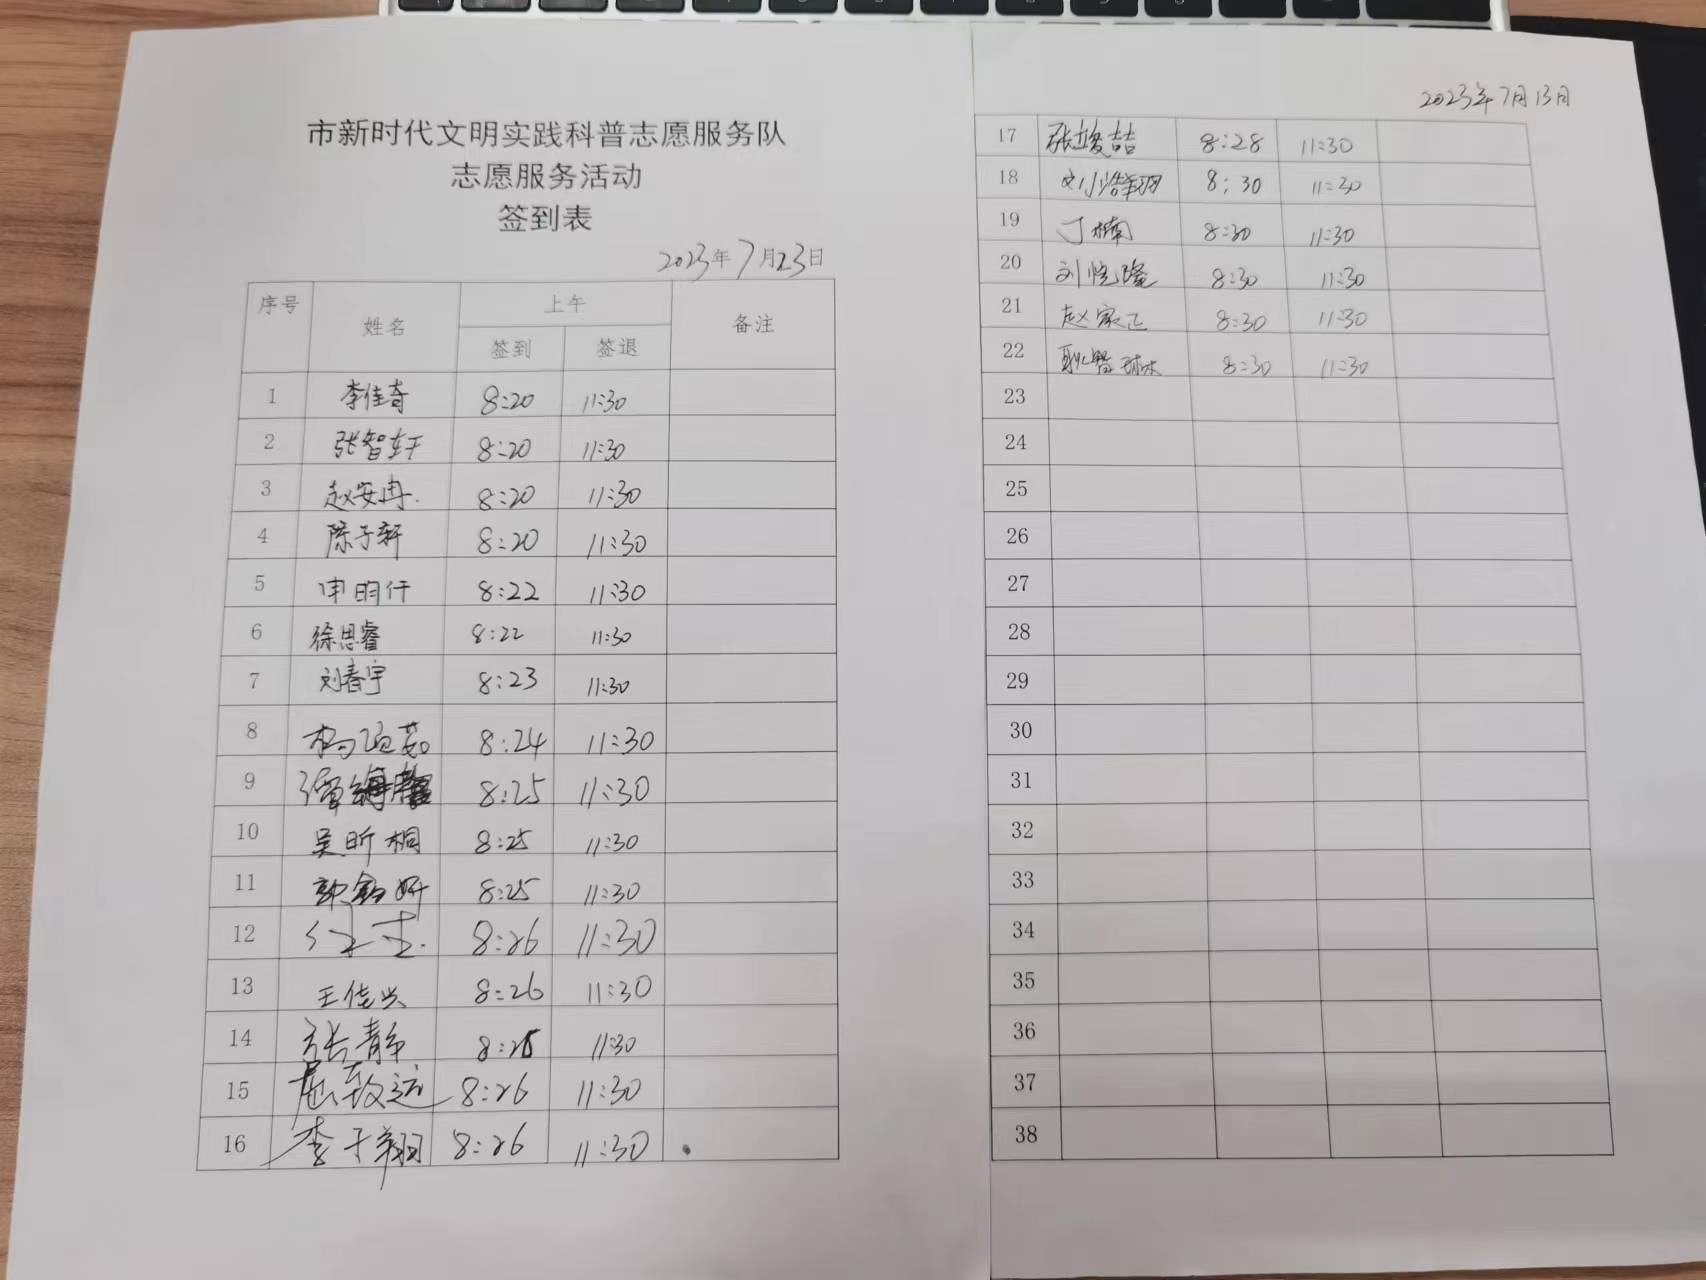 市新时代文明实践科普志愿服务队
志愿服务活动
签到表
2023年7月23日
序号 姓名 上午 备注
签到 签退
1 李佳奇 8:20 11:30
2 张智轩 8:20 11:30
3 赵安冉. 8:20 11:30
4 陈子轩 8:20 11:30
5 申昀仟 8:22 11:30
6 徐思睿 8:22 11:30
7 刘春宇 8:23 11:30
8 杨 茹 8:24 11:30
9 谭 8:25 11:30
10 吴昕桐 8:25 11:30
11 郭 妍 8:25 11:30
12 8:26 11:30
13 王佳兴 8:26 11:30
14 张静 8:25 11:30
15 屈致远 8:26 11:30
16 李子翔 8:26 11:30
2023年7月13日
17 张峻喆 8:28 11:30
18 刘浩翔 8:30 11:30
19 丁楠 8:30 11:30
20 刘悦隆 8:30 11:30
21 赵家正 8:30 11:30
22 耿智琳 8:30 11:30
23
24
25
26
27
28
29
30
31
32
33
34
35
36
37
38